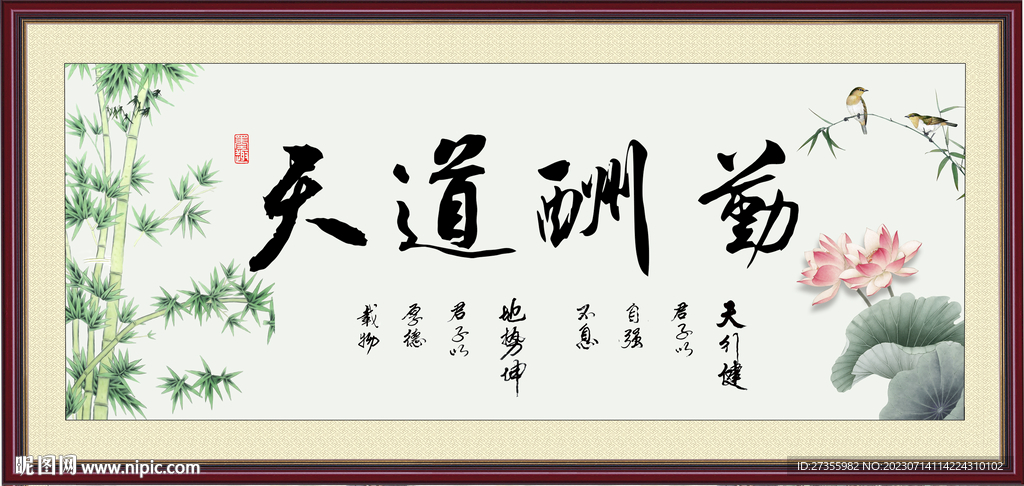 天道酬勤
天行健
君子以
自强
不息
地勢坤
君子以
厚德
載物
昵图网 www.nipic.com
ID:27355982 NO:20230714114224310102